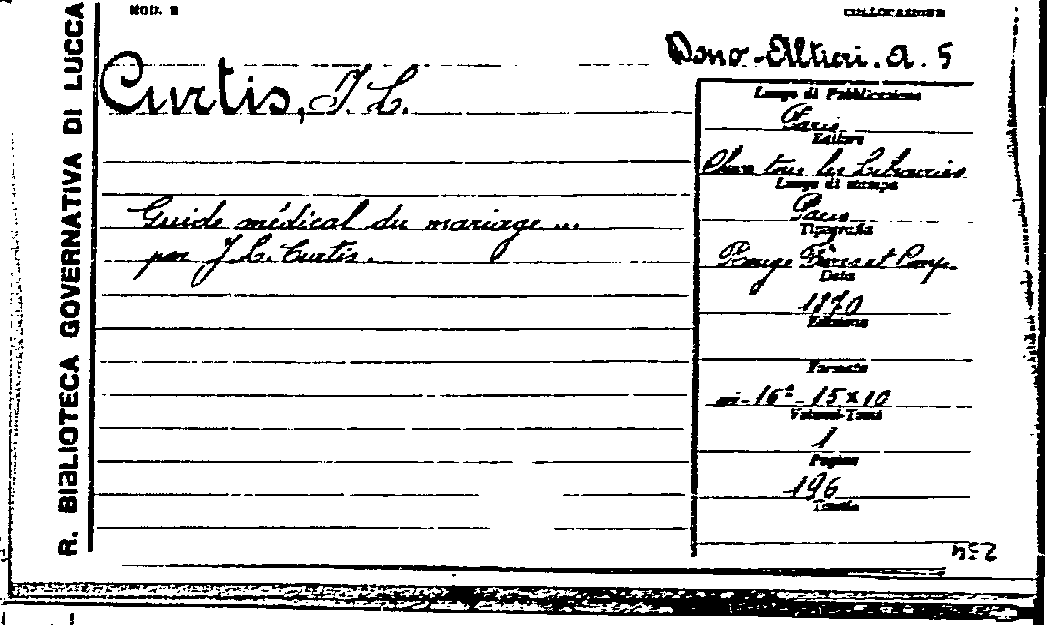 MOD. 2
COLLOCAZIONE
R. BIBLIOTECA GOVERNATIVA DI LUCCA
Dono-Altieri. A. 5
Curtis, J. C.
Guide médical du mariage ...
par J. C. Curtis.
Luogo di Pubblicazione
Paris
Editore
Chez tous les Libraires
Luogo di stampa
Paris
Tipografia
Rouge Frères et Comp.
Data
1870
Edizione
Formato
in-16° - 15 x 10
Volumi-Tomi
1
Pagine
196
Tavole
254